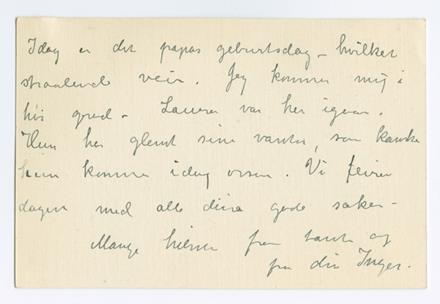 Idag er det papas geburtsdag - hvilket
straalende veir. Jeg kommer mig i
høi grad - Laura var her igaar.
Hun har glemt sine vanter, som kanske
hun kommer idag ogsaa. Vi feirer
dagen med alle dine gode saker -
Mange hilsner fra tante og
fra din Inger.